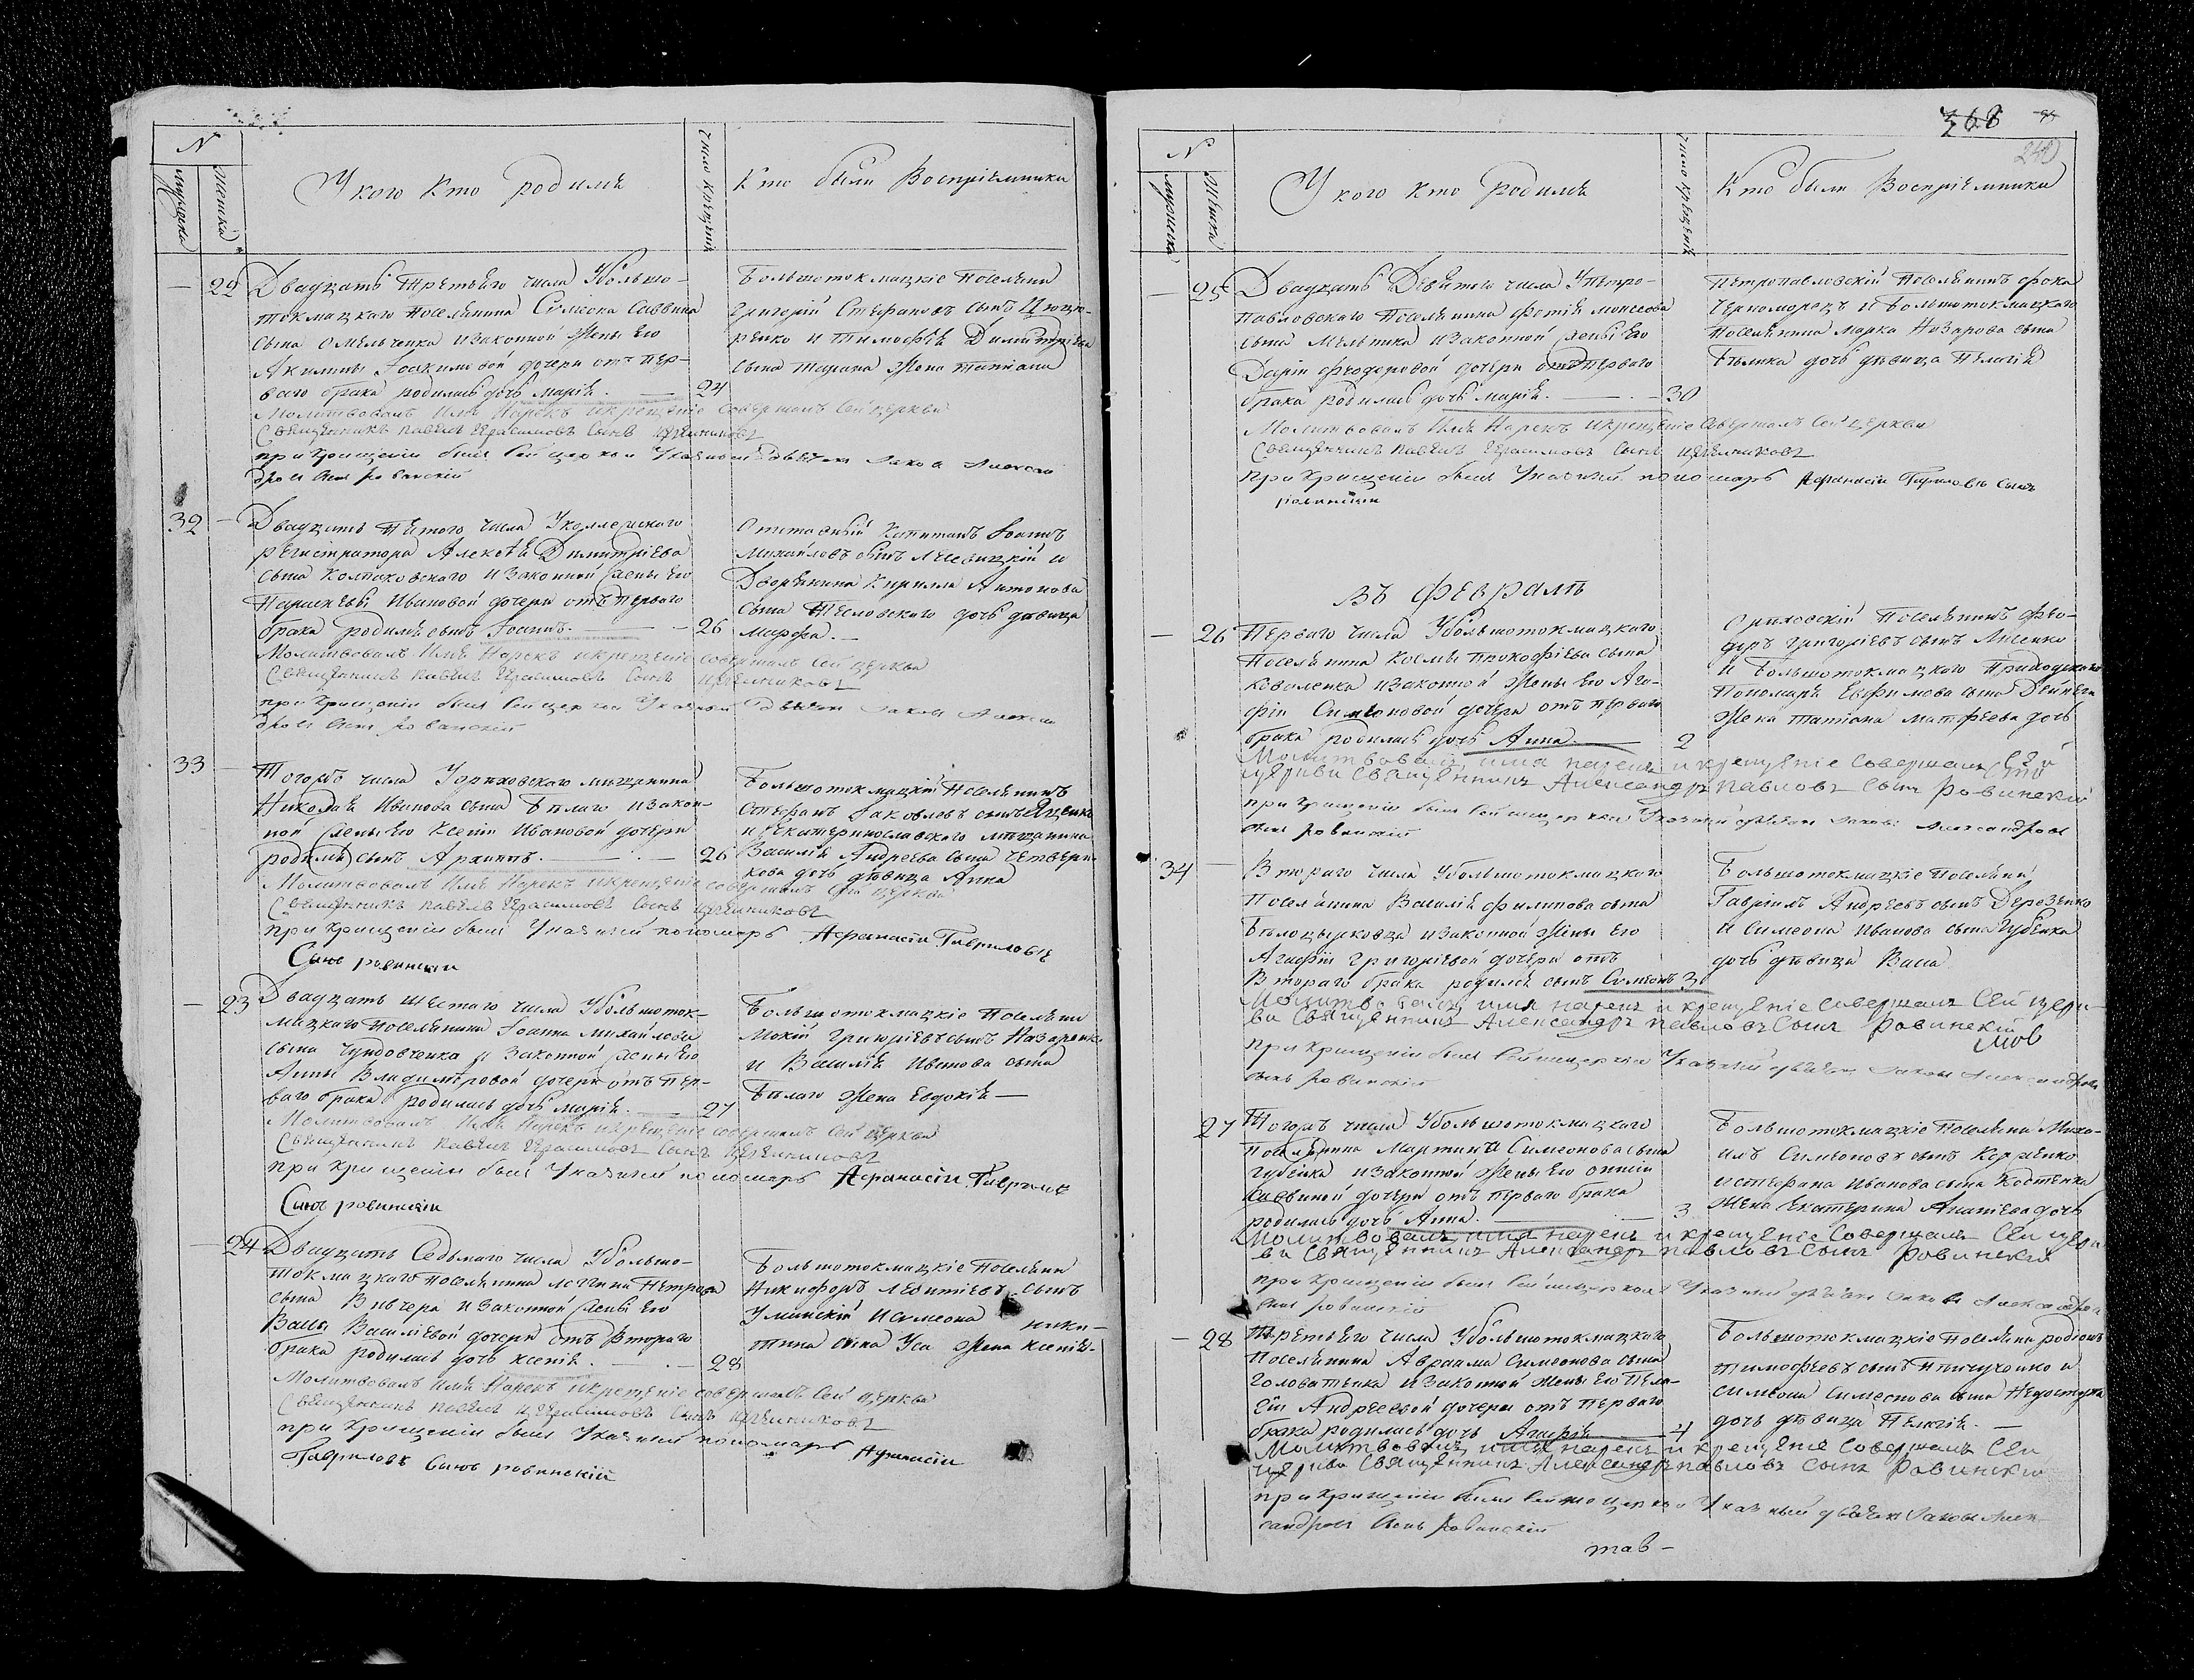 N
Мужска
Женска
У кого кто родилъ
Число крещенія
Кто были Воспріемники
22
Двадцать третьяго числа Убольшо-
токмацкаго поселянина Симеона Саввина
сына Омельченка изаконной жены его
Акилины Іоакимовой дочери отъ пер-
ваго брака родилась дочь Марія.
24
Большотокмацкіе поселяни
Григорій Стефановъ сынъ
ренко и Тимофѣя Димитріева
сына Тарана жена Татіана
Молитвовалъ имя нарекъ икрещеніе совершалъ сей церкви
Священникъ Павелъ Герасимовъ сынъ
при крещеніи былъ сей церкви Указный дьячокъ Іаковъ Алексан
дровъ сынъ Ровинскій
32
Двадцать пятого числа Уколлежского
регистратора Алексѣя Димитріева
сына Колпаковского изаконной жены его
Параскевы Ивановой дочери отъ перваго
брака родился сынъ Іоаннъ.
26
Отставный Капитанъ Іоаннъ
Михайловъ сынъ и
Дворянина Кирилла Антонова
сына дочь дѣвица
Марфа.
Молитвовалъ имя нарекъ икрещеніе совершалъ сей церкви
Священникъ Павелъ Герасимовъ сынъ
при крещеніи былъ сей церкви Указный дьячокъ Іаковъ Алексан
дровъ сынъ Ровинскій
33
Тогожъ числа Уорѣховского мѣщанина
Николая Иванова сына Бѣлаго изакон-
ной жены его Ксеніи Ивановой дочери
родился сынъ Архипъ.
26
Большотокмацкій поселянинъ
Стефанъ Іаковлевъ сынъ
и Екатеринославского мѣщанина
Василія Андреева сына Четвери-
кова дочь дѣвица Анна
Молитвовалъ имя нарекъ икрещеніе совершалъ сей церкви
Священникъ Павелъ Герасимовъ сынъ
при крещеніи былъ Указный пономарь Афанасій Гавриловъ
Сынъ ровинскій
23
Двадцать шестаго числа Убольшоток-
мацкаго поселянина Іоанна Михайлова
сына Чундовченка и Законной жены его
Анны Владиміровой дочери отъ пер-
ваго брака родилась дочь Марія.
27
Большотокмацкіе поселяни
Мокій Григоріевъ сынъ Назаренко
и Василія сына
Бѣлаго жена Евдокія
Молитвовалъ имя нарекъ икрещеніе совершалъ сей церкви
Священникъ Павелъ Герасимовъ сынъ
при крещеніи былъ Указный пономарь Афанасій Гаврилов
Сынъ ровинскій
24
Двадцать Седьмаго числа Убольшо-
токмацкаго поселянина Логгина Петрова
сына Вивчера изаконной жены его
Вассы Василіевой дочери отъ втораго
брака родилась дочь Ксенія.
28
Большотокмацкіе поселяни
Никифоръ Леонтіевъ сынъ
Уманскій исимеона ники-
тина сына Уса жена Ксенія.
Молитвовалъ имя нарекъ икрещеніе совершалъ сей церкви
Священникъ Павелъ Герасимовъ сынъ
при крещеніи былъ Указный пономарь Афанасій
Гавриловъ Сынъ ровинскій
368
240
N
Мужска
Женска
У кого кто родилъ
Число крещенія
Кто были Воспріемники
25
Двадцать Девятого числа Упетро-
павловского поселянина Фотія Моисеова
сына Мельника изаконной жены его
Даріи Феодоровой дочери отъ перваго
брака родилась дочь Марія.
30
Петропавловскій поселянинъ Фока
Черноморецъ и Большотокмацкаго
поселянина Марка Назарова сына
Бѣлика дочь дѣвица Пелагія
Молитвовалъ имя нарекъ икрещеніе совершалъ сей церкви
Священникъ Павелъ Герасимовъ сынъ
При крещеніи былъ Указный пономарь Афанасій Гавриловъ сынъ
ровинскій
Въ Февралѣ
26
Перваго числа Убольшотокмацкаго
поселянина Космы Прокофіева сына
Коваленка изаконной жены его Ага-
фіи Симеоновой дочери отъ перваго
брака родилась дочь Анна.
2
Орѣховскій поселянинъ Фео-
доръ Григоріевъ сынъ Лисенко
и Большотокмацкого
Пономаря Евфимова сына Дейнеги
жена Татіана Матфеева дочь
Молитвовалъ имя нарекъ и крещеніе совершалъ Сей
церкви Священникъ Александръ Павловъ сынъ Ровинскій
при крещеніи былъ сейжъ церкви Указный дьячокъ Іаковъ Александровъ
сынъ Ровинскій
34
Втораго числа Убольшотокмацкого
поселянина Василія Филипова сына
Бѣлоцырковца изаконной жены его
Агафіи Григоріевой дочери отъ
Втораго брака родился сынъ Симеонъ
3
Большотокмацкіе поселяни
Гавріилъ Андреевъ сынъ Дерозенко
и Симеона Иванова сына Губенка
дочь дѣвица Васса
Молитвовалъ имя нарекъ и крещеніе совершалъ Сей церк-
ви Священникъ Александръ Павловъ Сынъ Ровинскій
при крещеніи былъ сейжъ церкви Указный дьячокъ Іаковъ Александровъ
сынъ Ровинскій
27
Тогожъ числа Убольшотокмацкаго
поселянина Мартина Симеонова сына
Губенка изаконной жены его
Саввиной дочери отъ перваго брака
родилась дочь Анна.
3
Большотокмацкіе поселяни Миха-
илъ Симеоновъ сынъ
истефана Иванова сына Костенка
жена Екатерина Ананіева дочь
Молитвовалъ имя нарекъ и крещеніе совершалъ Сей церк
ви Священникъ Александръ Павловъ сынъ Ровинскій
при крещеніи былъ сейжъ церкви Указный дьячокъ Іаковъ Александров
сынъ Ровинскій
28
Третьяго числа Убольшотокмацкаго
поселянина Авраама Симеонова сына
Головатенка изаконной жены его Пела-
гіи Андреевой дочери отъ перваго
брака родилась дочь Агафія
4
Большотокмацкіе поселяни Родіонъ
Тимофеевъ сынъ и
Симеона Симеонова сына
дочь дѣвица Пелагія.
Молитвовалъ имя нарекъ и крещеніе совершалъ Сей
церкви Священникъ Александръ Павловъ сынъ Ровинскій
при крещеніи былъ сейже церкви Указный дьячокъ Іаковъ Алек-
сандровъ сынъ Ровинскій
тав-